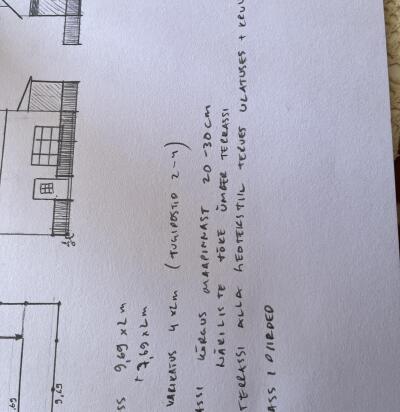 SS 9,69 x 2 m
+ 7,69 x 2 m
VARIKATUS 4 x 2 m (TUGIPOSTID 2-4)
ASSI KÕRGUS MAAPINNAST 20-30 CM
NÄRILISTE TÕKE ÜMBER TERRASSI
TERRASSI ALLA GEOTEKSTIIL TERVES ULATUSES +
ASSI PIIRDED
9,69
,69